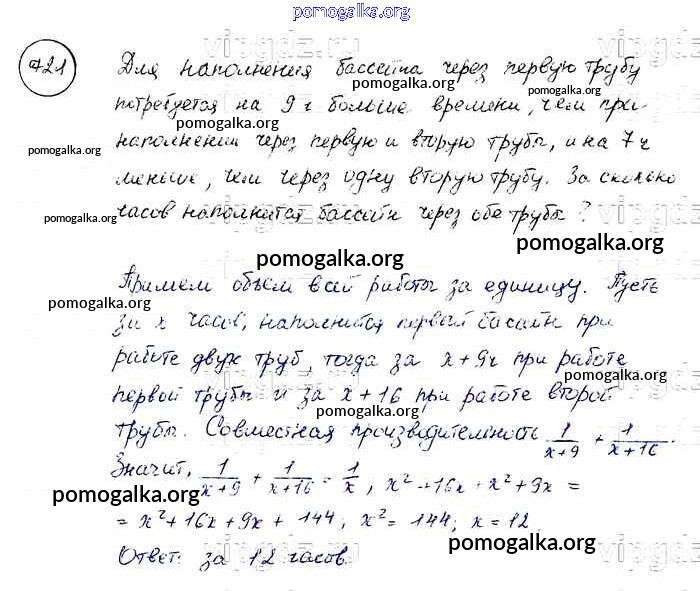 pomogalka.org
721
Для наполнения бассейна через первую трубу
потребуется на 9 ч больше времени, чем при
pomogalka.org
наполнении через первую и вторую трубы, и на 7 ч
pomogalka.org
меньше, чем через одну вторую трубу. За сколько
часов наполнится бассейн через обе трубы?
pomogalka.org
pomogalka.org
pomogalka.org
Примем объем всей работы за единицу. Пусть
pomogalka.org
за x часов, наполнится первый басайн при
работе двух труб, тогда за x+9ч при работе
pomogalka.org
первой трубы и за x+16 при работе второй
pomogalka.org
трубы. Совместная производительность 1/(x+9) + 1/(x+16).
Значит, 1/(x+9) + 1/(x+16) = 1/x, x²+16x+x²+9x =
pomogalka.org
= x²+16x+9x+144, x²=144; x=12.
pomogalka.org
Ответ: за 12 часов.